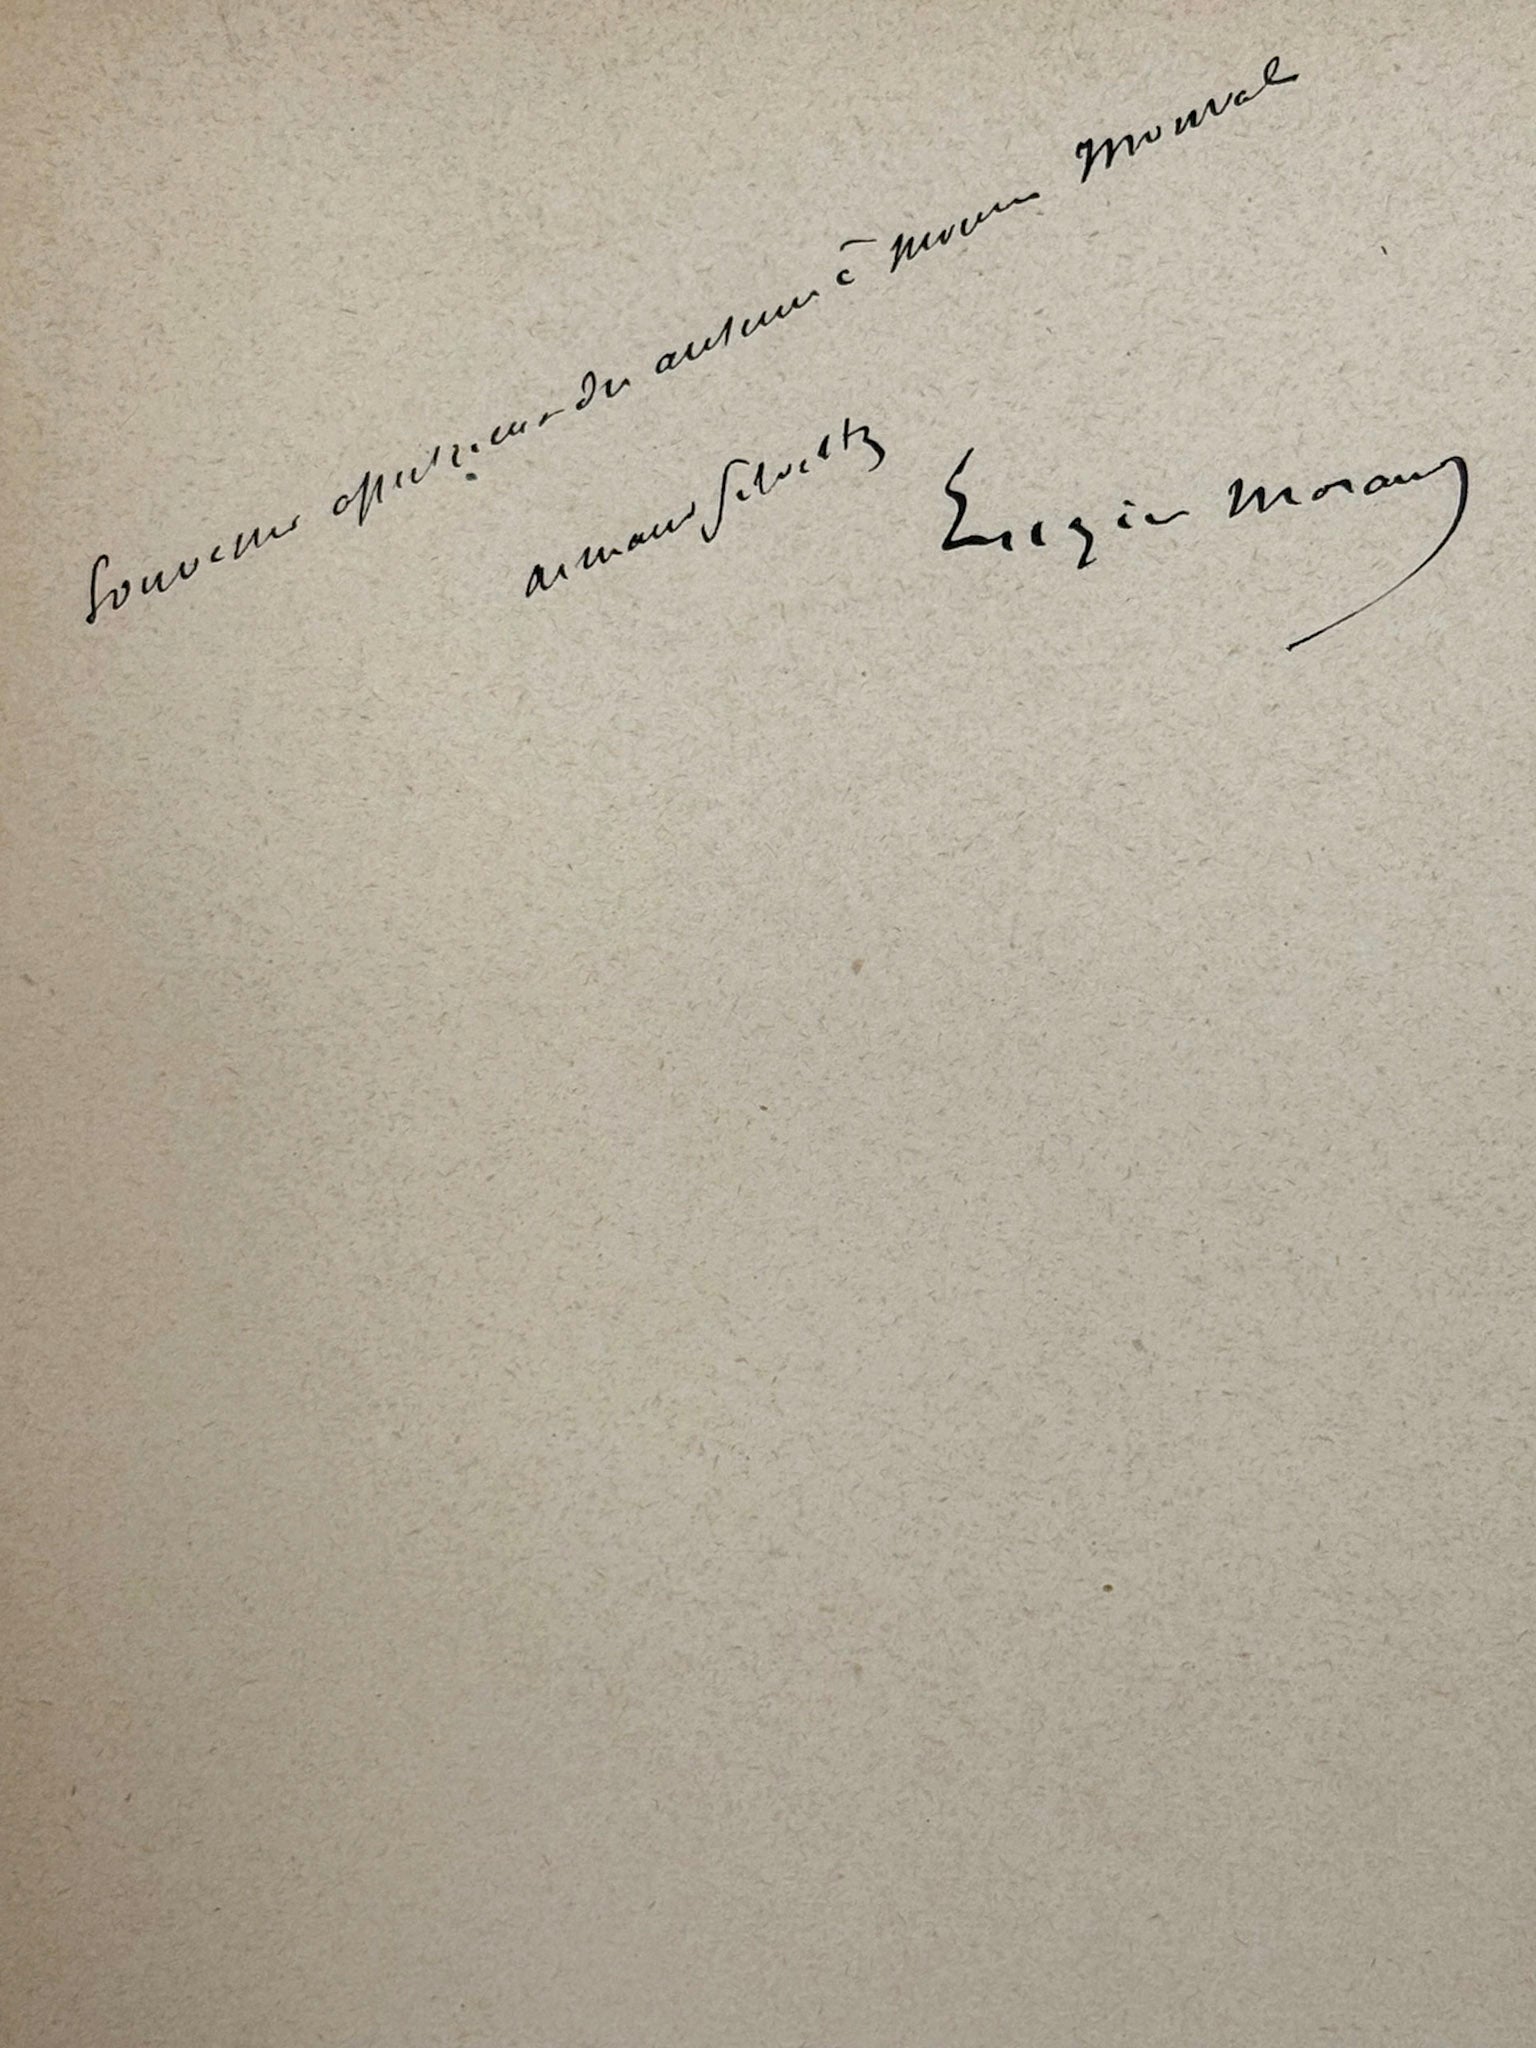 Souvenir affectueux des auteurs à Monsieur Monval
Armand Silvestre Eugène Morand